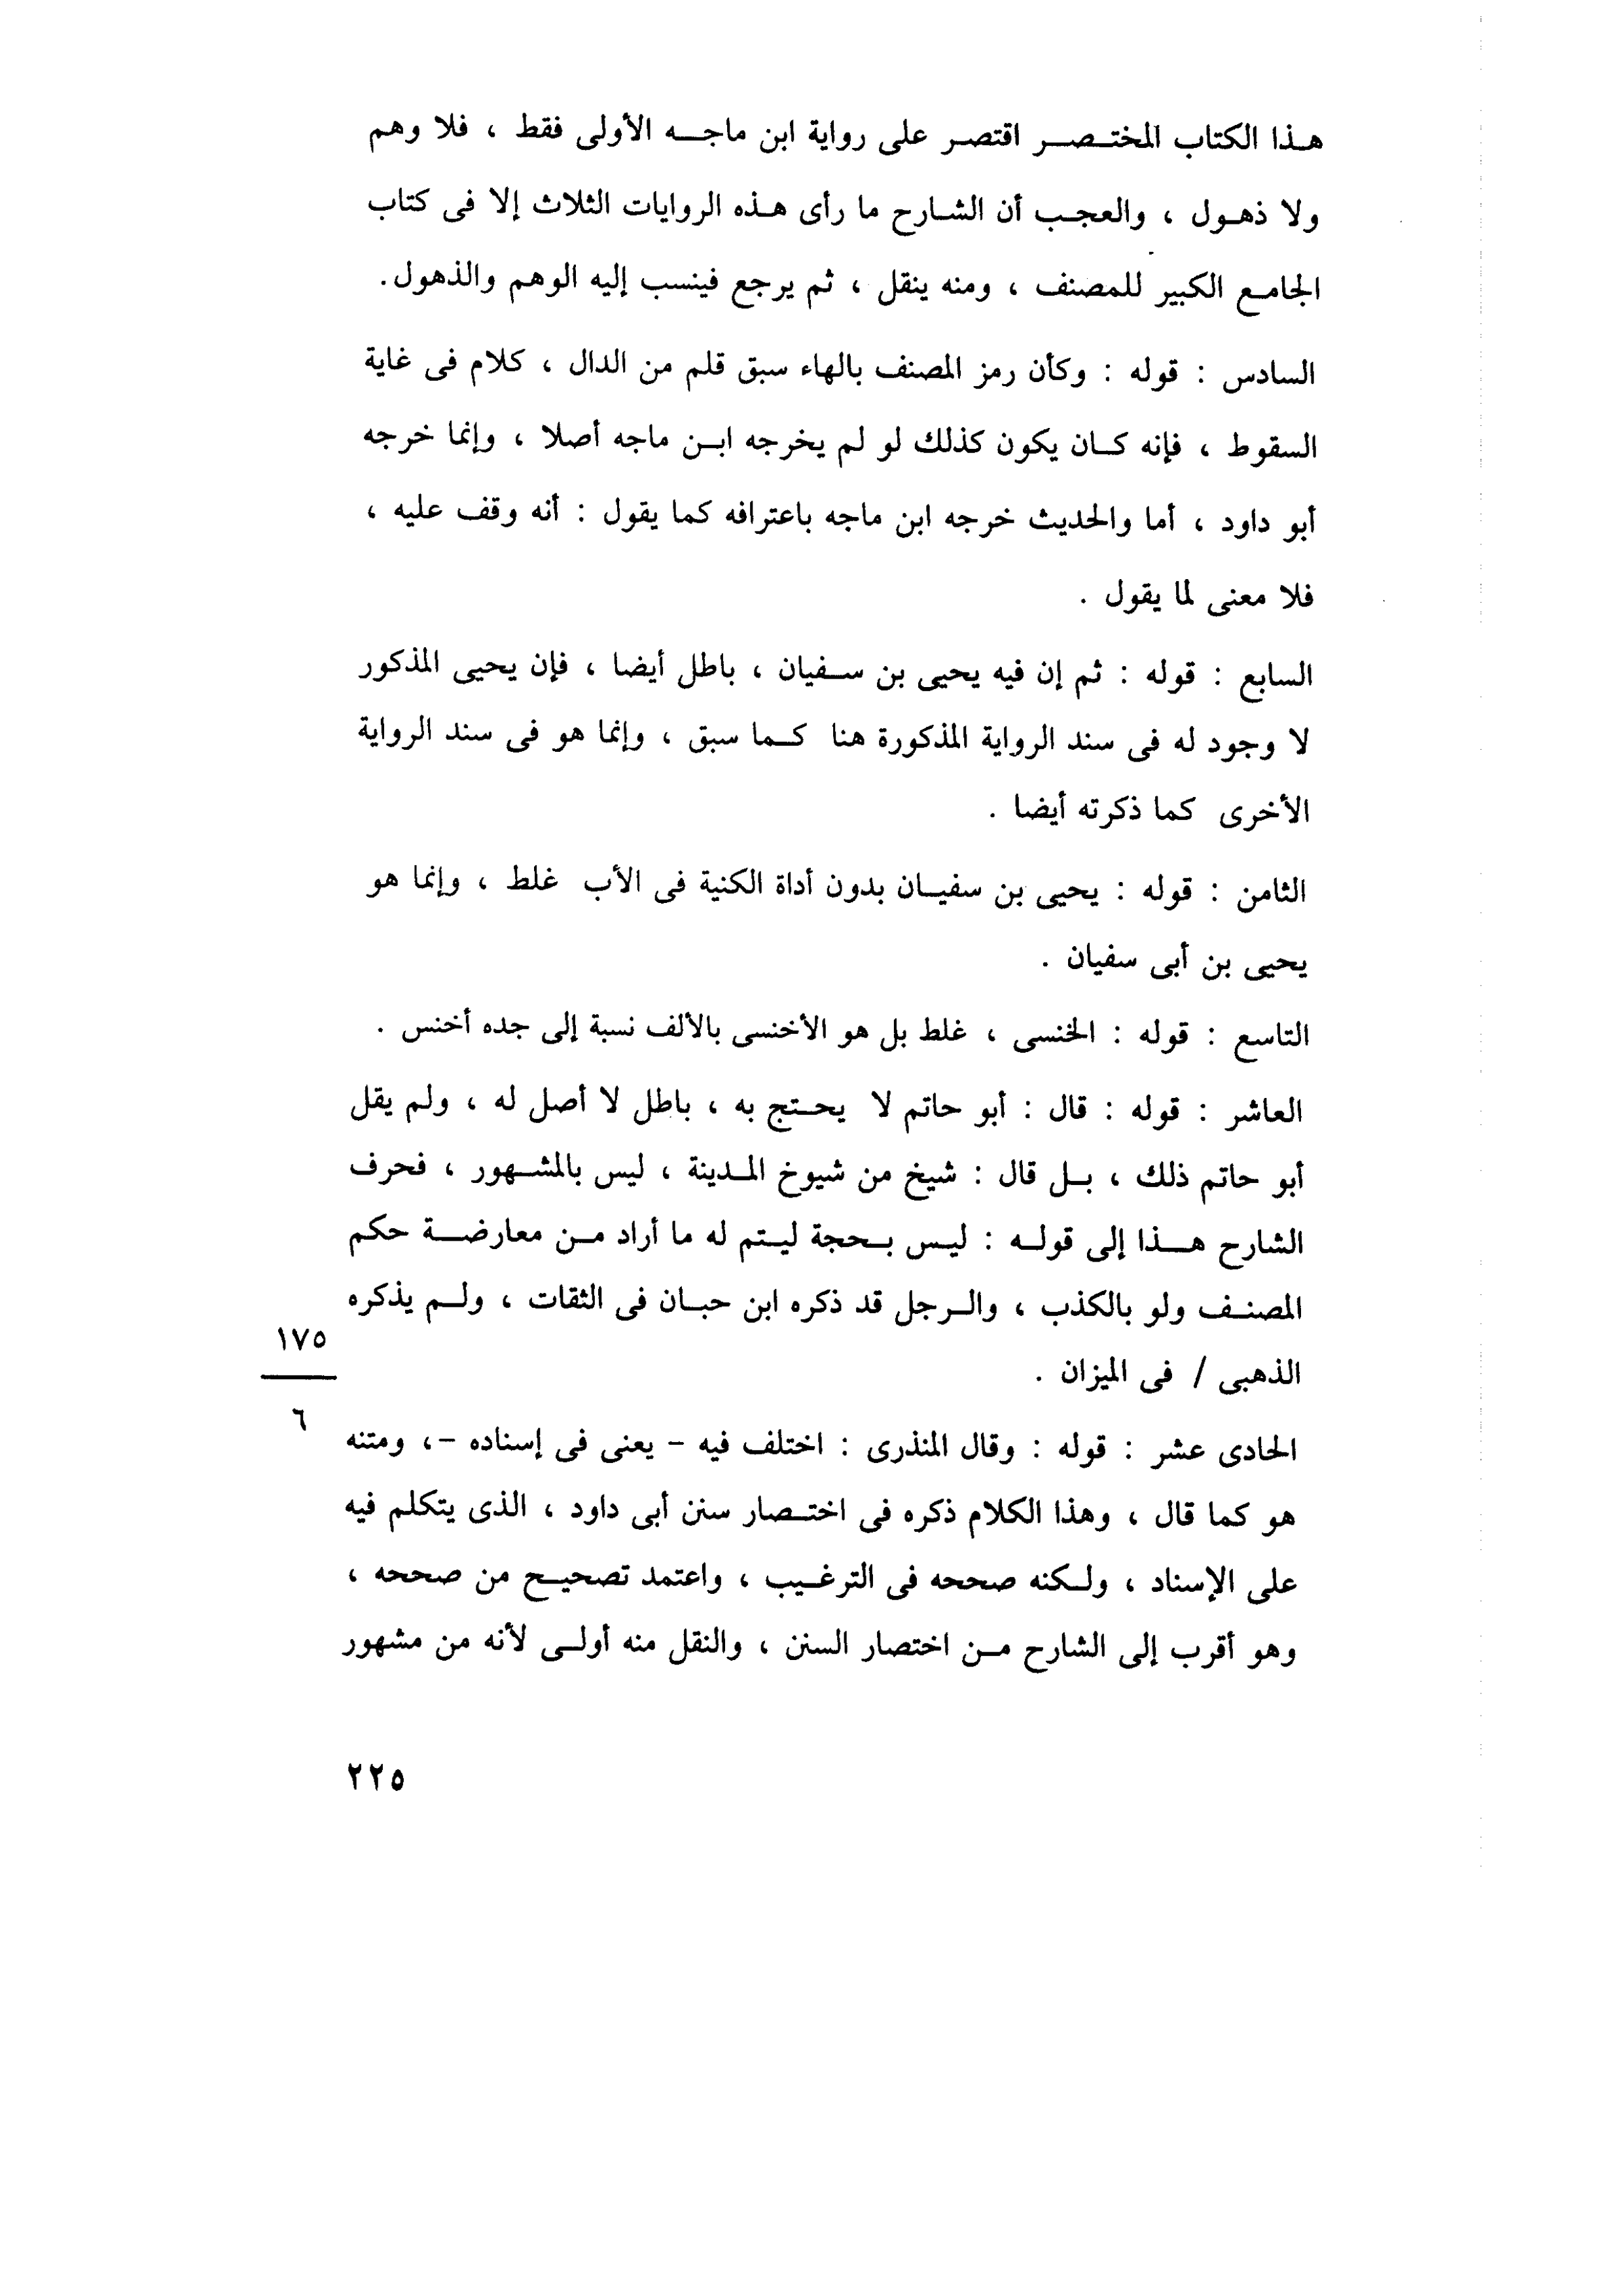 هذا الكتاب المختصر اقتصر على رواية ابن ماجه الأولى فقط ، فلا وهم
ولا ذهول ، والعجب أن الشارح ما رأى هذه الروايات الثلاث إلا فى كتاب
الجامع الكبير للمصنف ، ومنه ينقل ، ثم يرجع فينسب إليه الوهم والذهول.
السادس : قوله : وكأن رمز المصنف بالهاء سبق قلم من الدال ، كلام فى غاية
السقوط ، فإنه كان يكون كذلك لو لم يخرجه ابن ماجه أصلا ، وإنما خرجه
أبو داود ، أما والحديث خرجه ابن ماجه باعترافه كما يقول : أنه وقف عليه ،
فلا معنى لما يقول .
السابع : قوله : ثم إن فيه يحيى بن سفيان ، باطل أيضا ، فإن يحيى المذكور
لا وجود له فى سند الرواية المذكورة هنا كما سبق ، وإنما هو فى سند الرواية
الأخرى كما ذكرته أيضا .
الثامن : قوله : يحيى بن سفيان بدون أداة الكنية فى الأب غلط ، وإنما هو
يحيى بن أبى سفيان .
التاسع : قوله : الخنسى ، غلط بل هو الأخنسى بالألف نسبة إلى جده أخنس .
العاشر : قوله : قال : أبو حاتم لا يحتج به ، باطل لا أصل له ، ولم يقل
أبو حاتم ذلك ، بل قال : شيخ من شيوخ المدينة ، ليس بالمشهور ، فحرف
الشارح هذا إلى قوله : ليس بحجة ليتم له ما أراد من معارضة حكم
المصنف ولو بالكذب ، والرجل قد ذكره ابن حبان فى الثقات ، ولم يذكره
١٧٥
الذهبى / فى الميزان .
٦
الحادى عشر : قوله : وقال المنذرى : اختلف فيه - يعنى فى إسناده -، ومتنه
هو كما قال ، وهذا الكلام ذكره فى اختصار سنن أبى داود ، الذى يتكلم فيه
على الإسناد ، ولكنه صححه فى الترغيب ، واعتمد تصحيح من صححه ،
وهو أقرب إلى الشارح من اختصار السنن ، والنقل منه أولى لأنه من مشهور
٢٢٥